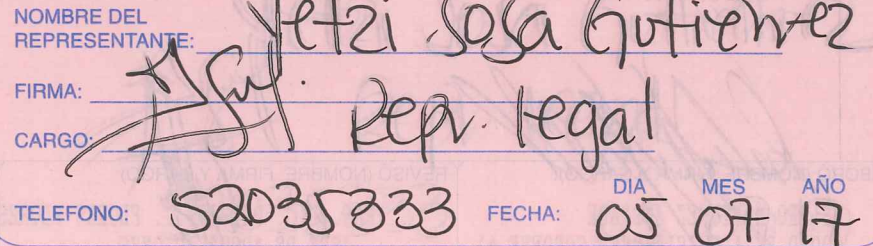 NOMBRE DEL
REPRESENTANTE: Yetzi Sosa Gutierrez
FIRMA:
CARGO: Repr. legal
TELEFONO: 52035333 FECHA: DIA 05 MES 07 AÑO 17